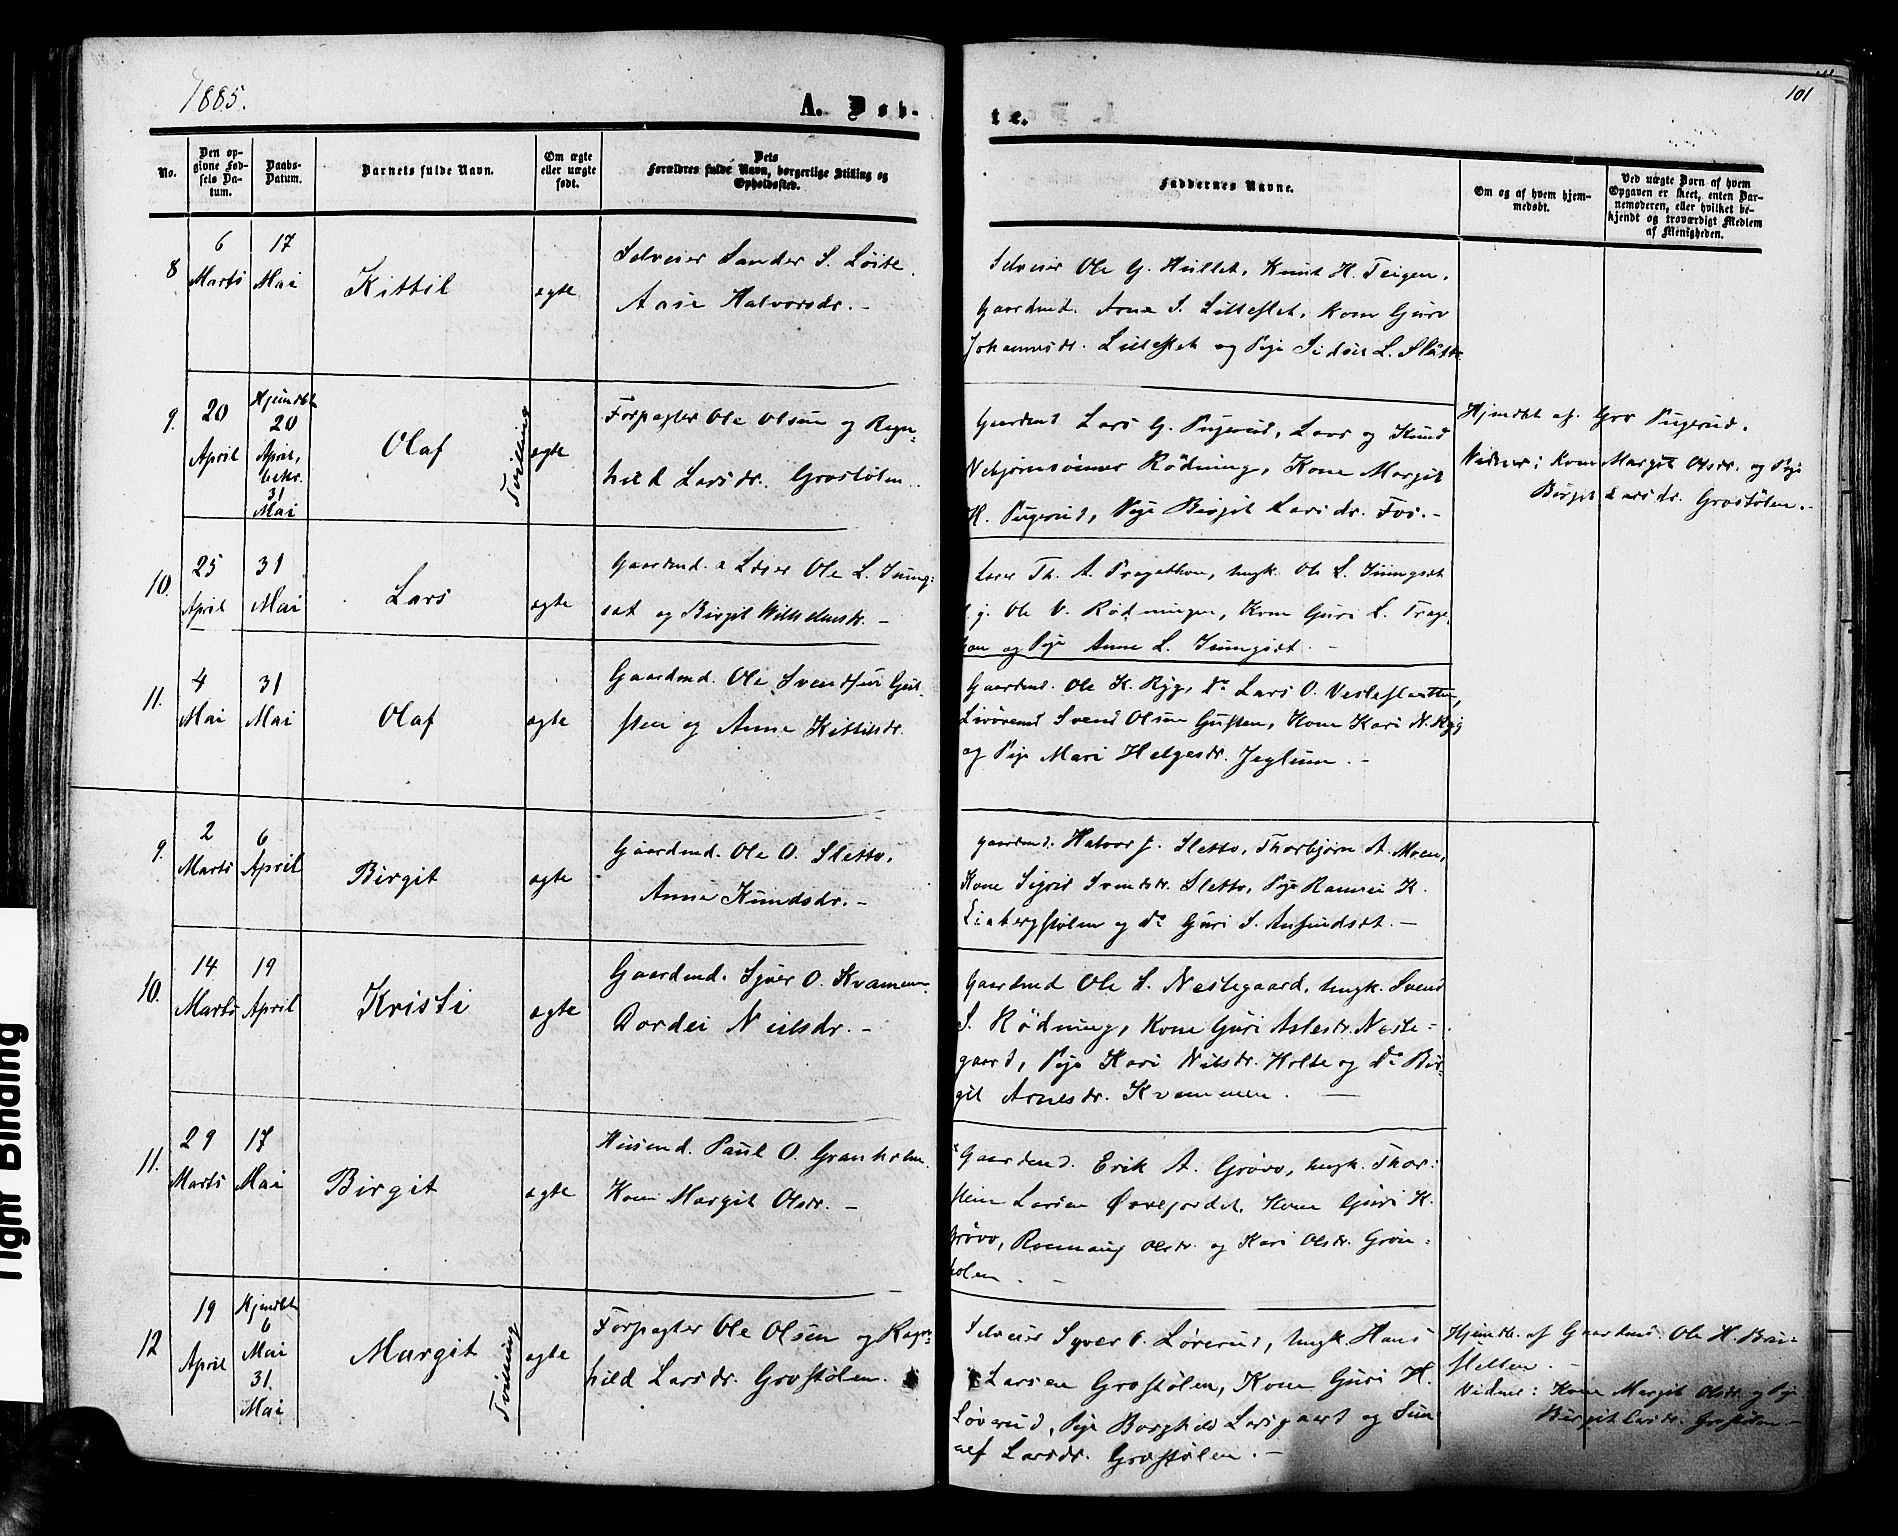 1885.
A. Døb-
te.
101
No.
Den op-
givne Fød-
sels Da-
tum.
Daabs-
Datum.
Barnets fulde Navn.
Om ægte
eller uægte
født.
Dets
Forældres fulde Navn, borgerlige Stilling og
Opholdssted.
Faddernes Navne.
Om og af hvem hjem-
medøbt.
Ved uægte Børn af hvem
Opgaven er skeet, enten Bar-
nemoderen, eller hvilket be-
kjendt og troværdigt Medlem
af Menigheden.
8
6
Marts
17
Mai
Kittil
ægte
Selveier Sander S. Løite.
Aase Halvorsdr. -
Selveier Ole G. Hullet, Knud H. Teigen,
Gaardmd. Arne S. Lilleslet, Kone Guro
Johannesdr. Lilleslet og Pige Sidsel L. Slåtte
9.
20
April
Hjemdbt
20
April,
bekr.
31
Mai
Olaf
Tvilling
ægte
Forpagter Ole Olsen og Ragn-
hild Larsdr. Grostølen.
Gaardmd Lars G. Pugerud, Lars og Knud
Nebjørnsønner Rødning, Kone Margit
H. Pugerud, Pige Birgit Larsdr. Fos. -
Hjemdbt af Gro Pugerud.
Vidner: Kone Margit Olsdr. og Pige
Birgit Larsdr. Grostølen. -
10.
25
April
31
Mai
Lars
ægte
Gaardmd. & Lærer Ole L.
og Birgit Wilhelmsdr. -
Lærer Th. A. Ungk. Ole L.
Ole V. Rødningen, Kone Guri L.
og Pige Anne L.
11.
4
Mai
31
Mai
Olaf
ægte
Gaardmd. Ole Svendsen Gul-
sten og Anne Kittilsdr.
Gaardmd. Ole K. Ryg, do Lars O. Vesleslaatten,
Livøremd Svend Olsen Gulsten, Kone Kari N. Ryg
og Pige Mari Helgesdr. Jeglum. -
9.
2
Marts
6
April
Birgit
ægte
Gaardmd. Ole O. Sletto.
Anne Knudsdr. -
Gaardmd. Halvor J. Sletto, Thorbjørn A. Moen,
Kone Sigrid Svendsdr. Sletto, Pige Ramvei K.
Liabergstølen og do Guri S. -
10.
14
Marts
19
April
Kristi
ægte
Gaardmd. Syver O. Kvammen.
Dordei Nielsdr. -
Gaardmd Ole S. Neslegaard, Ungk. Svend
S. Rødning, Kone Guri Aslesdr. Nesle-
gaard, Pige Kari Nilsdr. Holte og do Bir-
git Arnesdr. Kvammen. -
11.
29
Marts
17
Mai
Birgit
ægte
Husmd. Paul O. Grønholen.
Kone Margit Olsdr. -
Gaardmd. Erik A. Grøvo, Ungk. Thor-
stein Larsen Øvrejordet, Kone Guri K.
Grøvo, Rønnaug Olsdr. og Kari Olsdr. Grøn-
holen. -
12
19
April
Hjemdbt
6
Mai
31
Mai
Margit
Tvilling
ægte
Forpagter Ole Olsen og Ragn-
hild Larsdr. Grostølen.
Selveier Syver O. Løverud, Ungk. Hans
Larsen Grostølen, Kone Guri H.
Løverud, Pige Borghild Larsgaard og
Larsdr. Grostølen. -
Hjemdb. af Gaardmd. Ole H.
Vidner: Kone Margit Olsdr. og Pige
Birgit Larsdr. Grostølen. -
Tight Binding